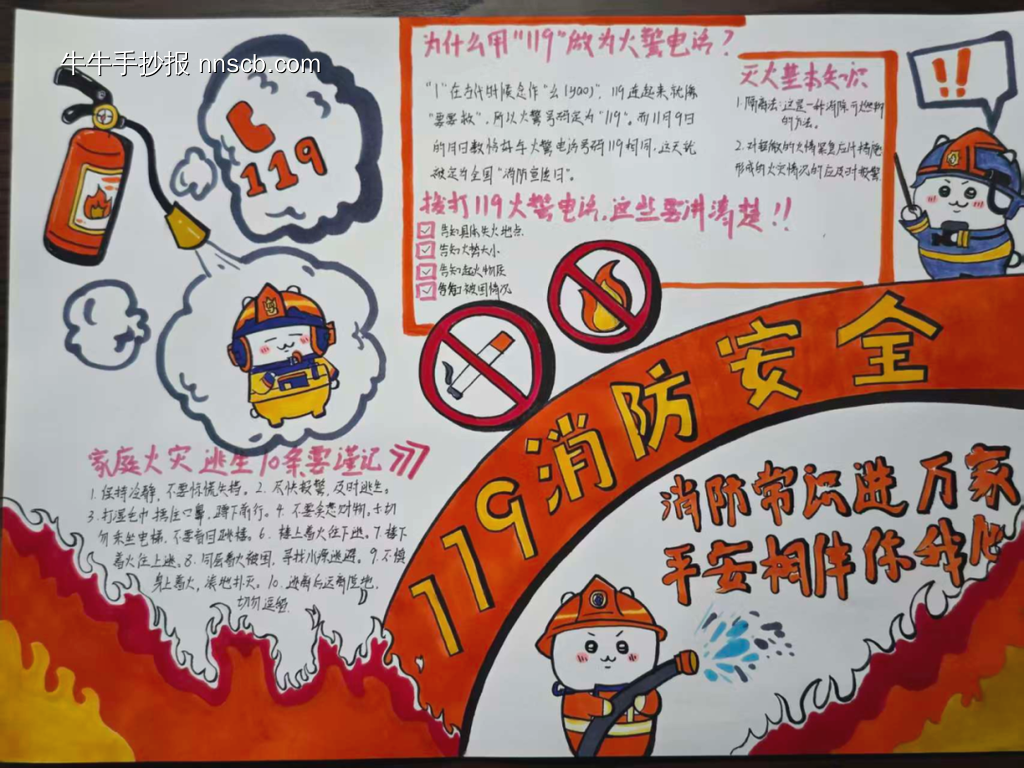 牛牛手抄报 nnscb.com
119
为什么用"119"做为火警电话?
"1"在古代时候念作"幺(yao)". 119连起来就像
"要要救", 所以火警号码定为"119". 而11月9日
的月日数恰好与火警电话号码119相同, 这天就
被定为全国"消防宣传日".
拨打119火警电话,这些要讲清楚!!
告知具体失火地点
告知火势大小
告知起火物质
告知被困情况
灭火基本知识
1.隔离法:这是一种消除可燃物
的方法。
2.对
!!
家庭火灾 逃生10条要谨记
1.保持冷静,不要惊慌失措。2.尽快报警,及时逃生。
3.打湿毛巾 捂住口鼻,蹲下前行。4.不要贪恋财物。5.切
勿乘坐电梯,不要盲目跳楼。6.楼上着火往下逃。7.楼下
着火往上逃。8.同层着火被困,寻找水源逃避。9.不慎
身上着火,滚地扑灭。10.逃离后远离险地,
切勿逗留
119消防安全
消防常识进万家
平安相伴你我他